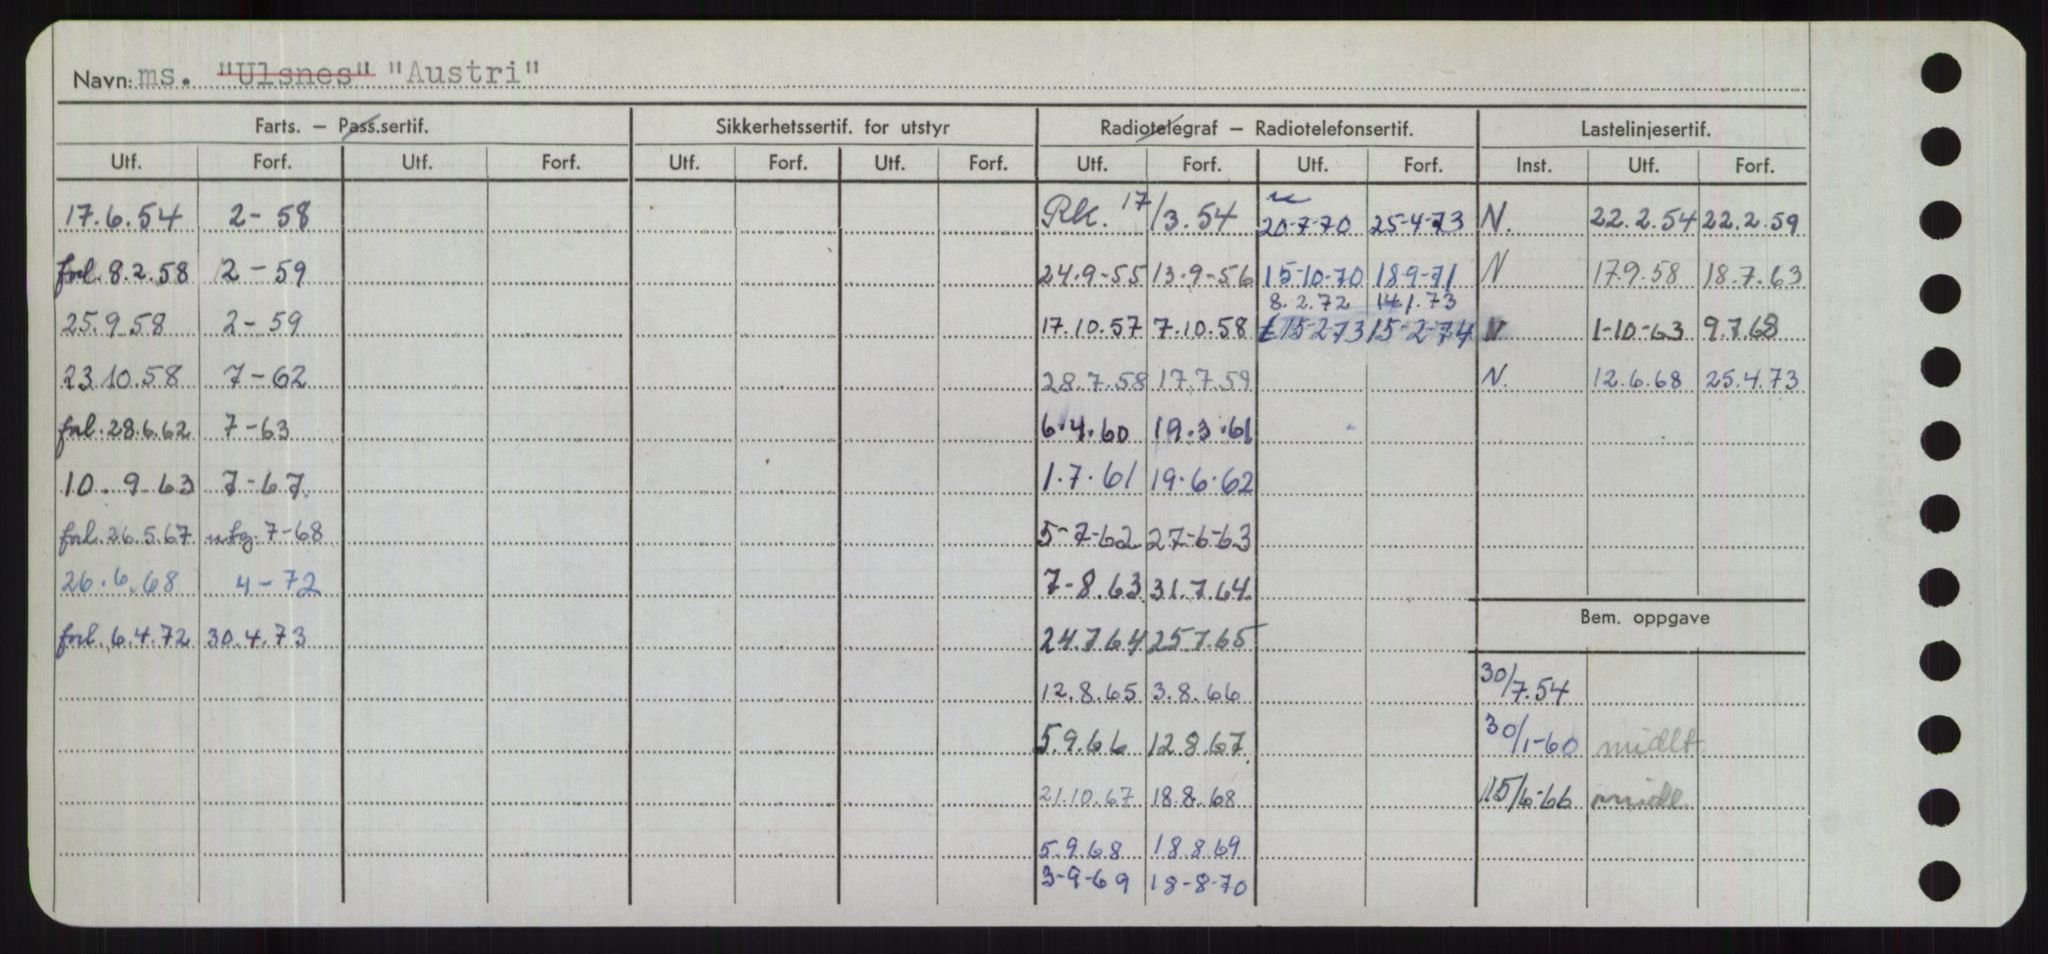 Navn: ms. "Ulsnes" "Austri"
Farts. – Pass.sertif. Sikkerhetssertif. for utstyr Radiotelegraf – Radiotelefonsertif. Lastelinjesertif.
Utf. Forf. Utf. Forf. Utf. Forf. Utf. Forf. Utf. Forf. Utf. Forf. Inst. Utf. Forf.
17.6.54 2-58 RK. 17/3.54 20-7-70 25-4-73 N. 22.2.54 22.2.59
forl. 8.2.58 2-59 24.9-55 13.9-56 15-10-70 18-9-71 N 17.9.58 18.7.63
8.2.72 14.1.73
25.9.58 2-59 17.10.57 7.10.58 15-2-73 15-2-74 N 1-10-63 9.7.68
23.10.58 7-62 28.7.58 17.7.59 N. 12.6.68 25.4.73
forl. 28.6.62 7-63 6.4.60 19.3.61
10.9.63 7-67 1.7.61 19.6.62
forl. 26.5.67 utg. 7-68 5-7-62 27-6-63
26.6.68 4-72 7-8.63 31.7.64
Bem. oppgave
forl. 6.4.72 30.4.73 24.7.64 25.7.65
12.8.65 3.8.66 30/7.54
5.9.66 12.8.67 30/1-60 midlt
21.10.67 18.8.68 15/6-66 midl.
5.9.68 18.8.69
3-9-69 18-8-70